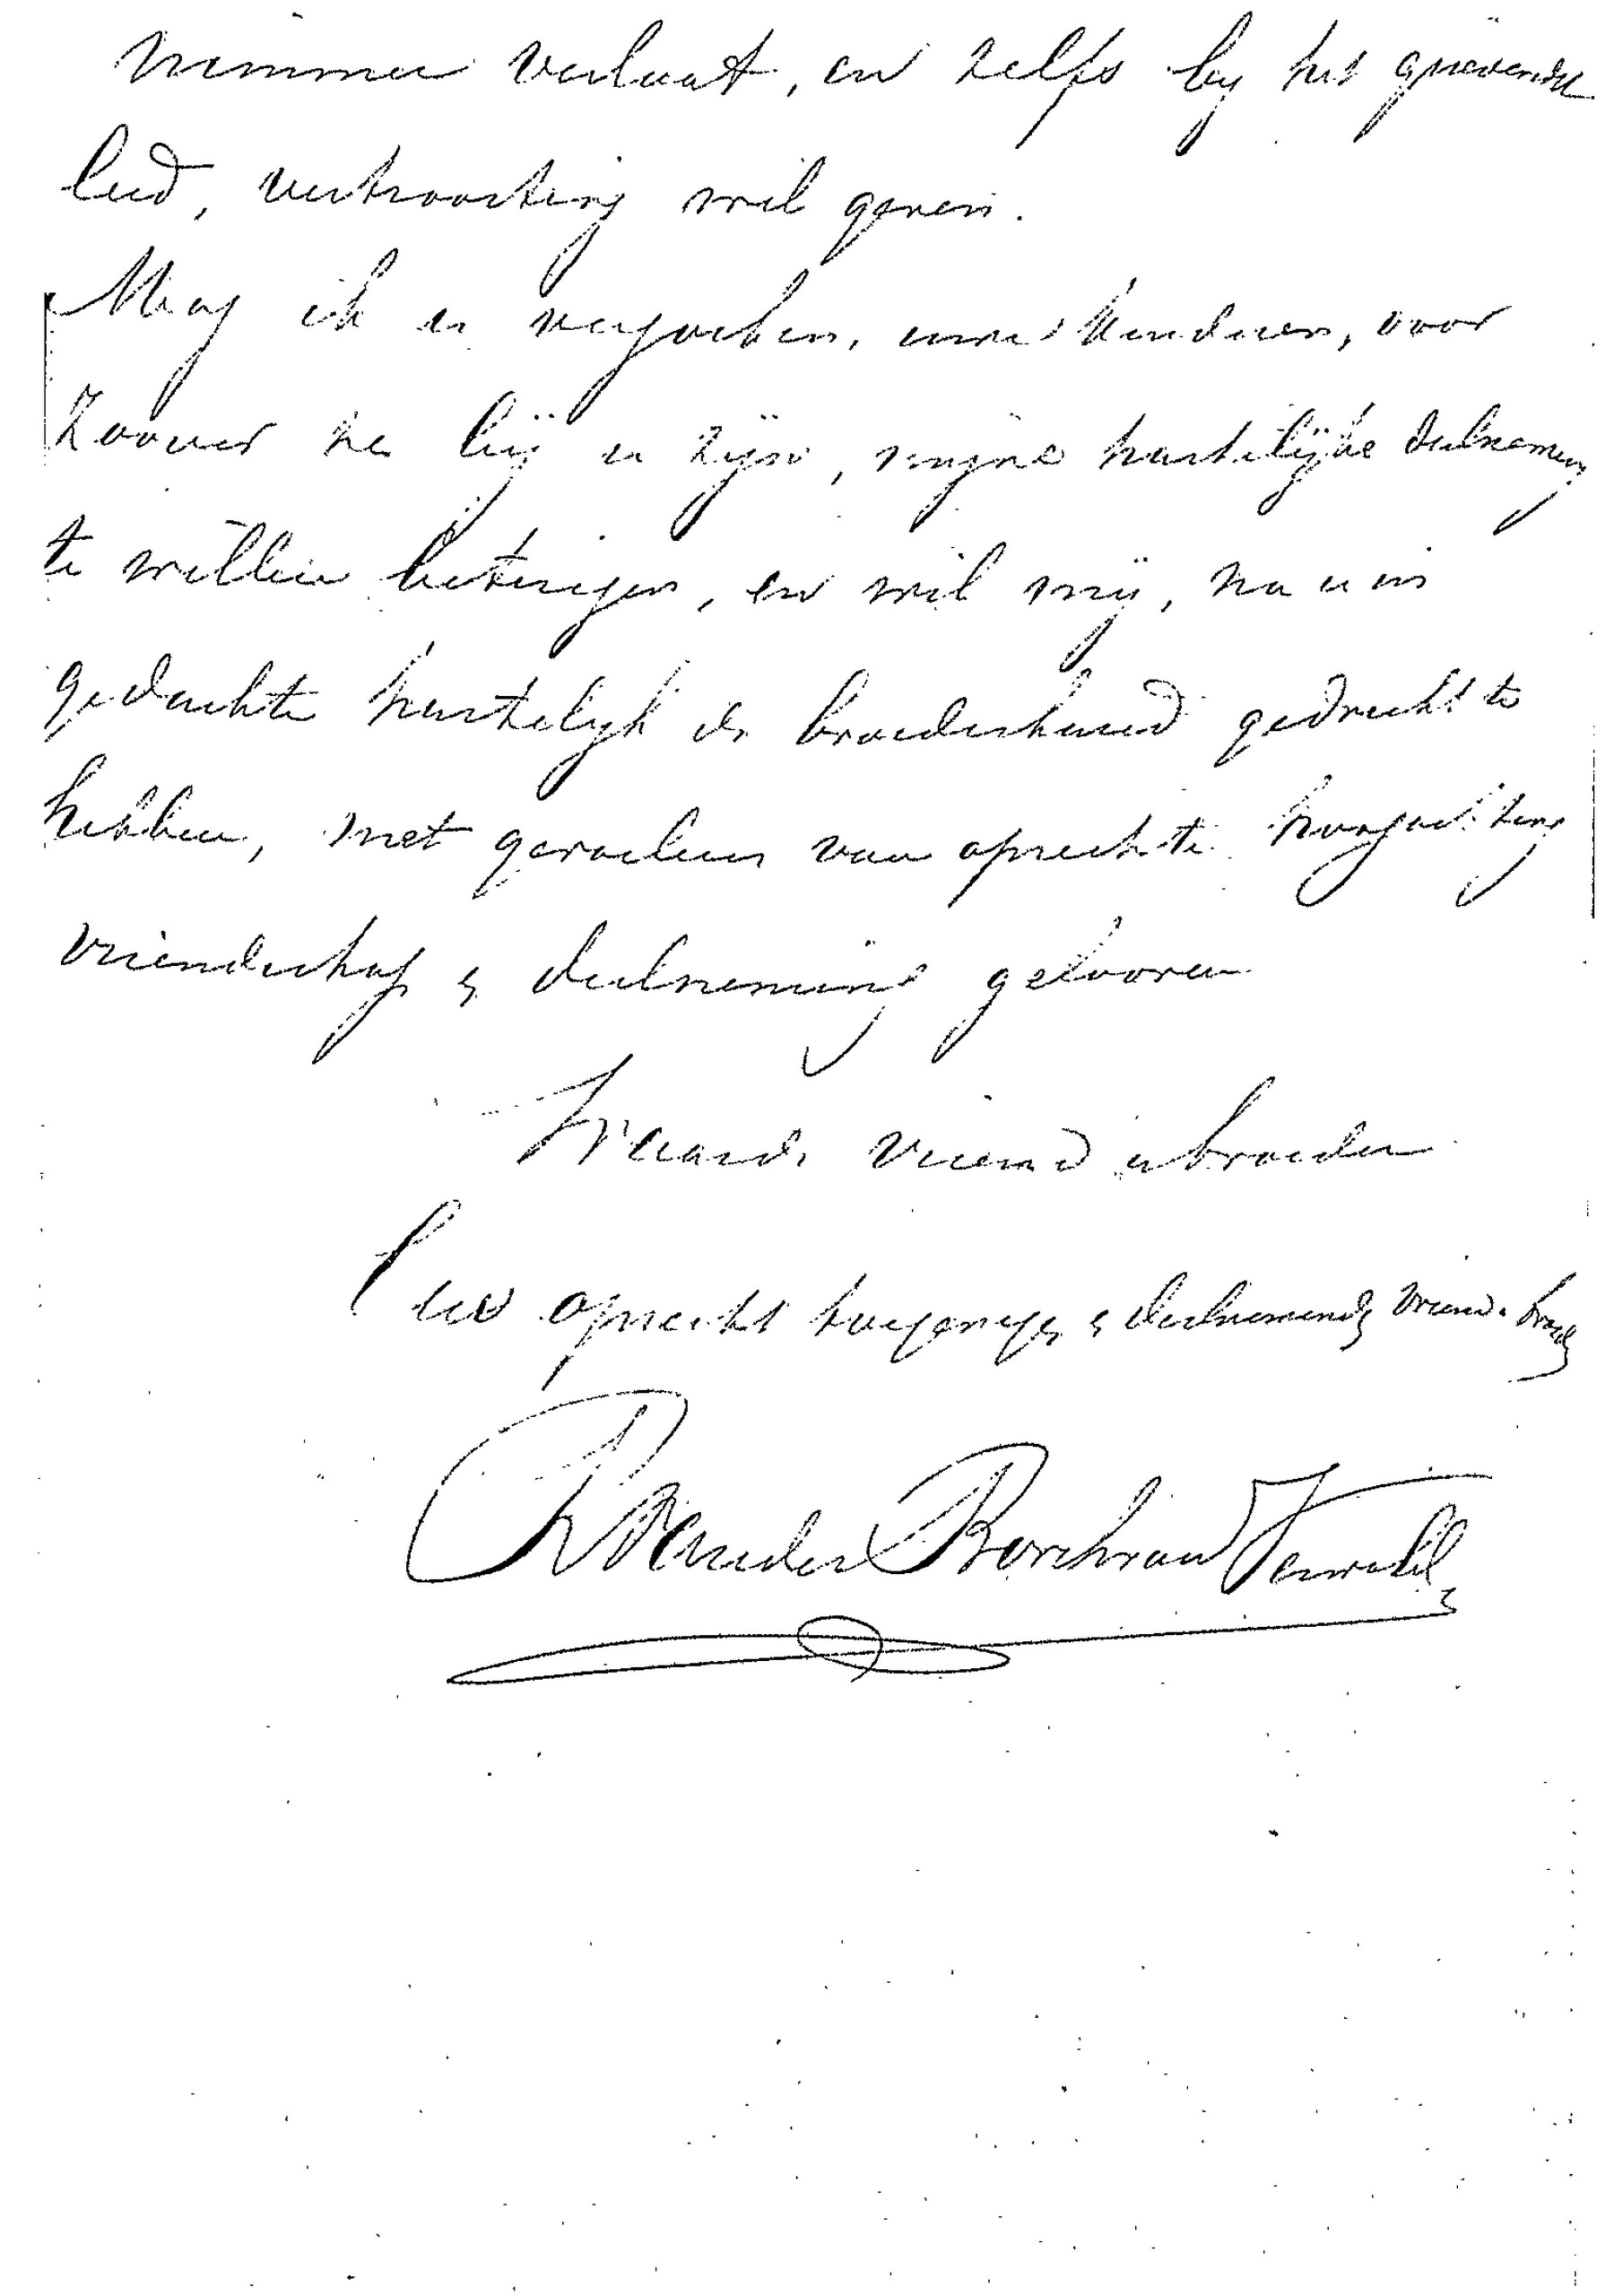 nimmer verlaat, en zelfs by het grievendst
leed, vertroosting wil geven.
Mag ik u verzoeken, uwe kinderen, voor
zoover ze bij u zijn, mijne hartelijke deelneming
te willen betuigen, en wil mij, na u in
gedachte hartelijk de broederhand gedrukt te
hebben, met gevoelens van oprechte hoogachting
vriendschap & deelneming gelooven
Waarde vriend en broeder
Uw oprecht toegenege & deelnemende vriend & broeder
R van der Borch van Verwolde